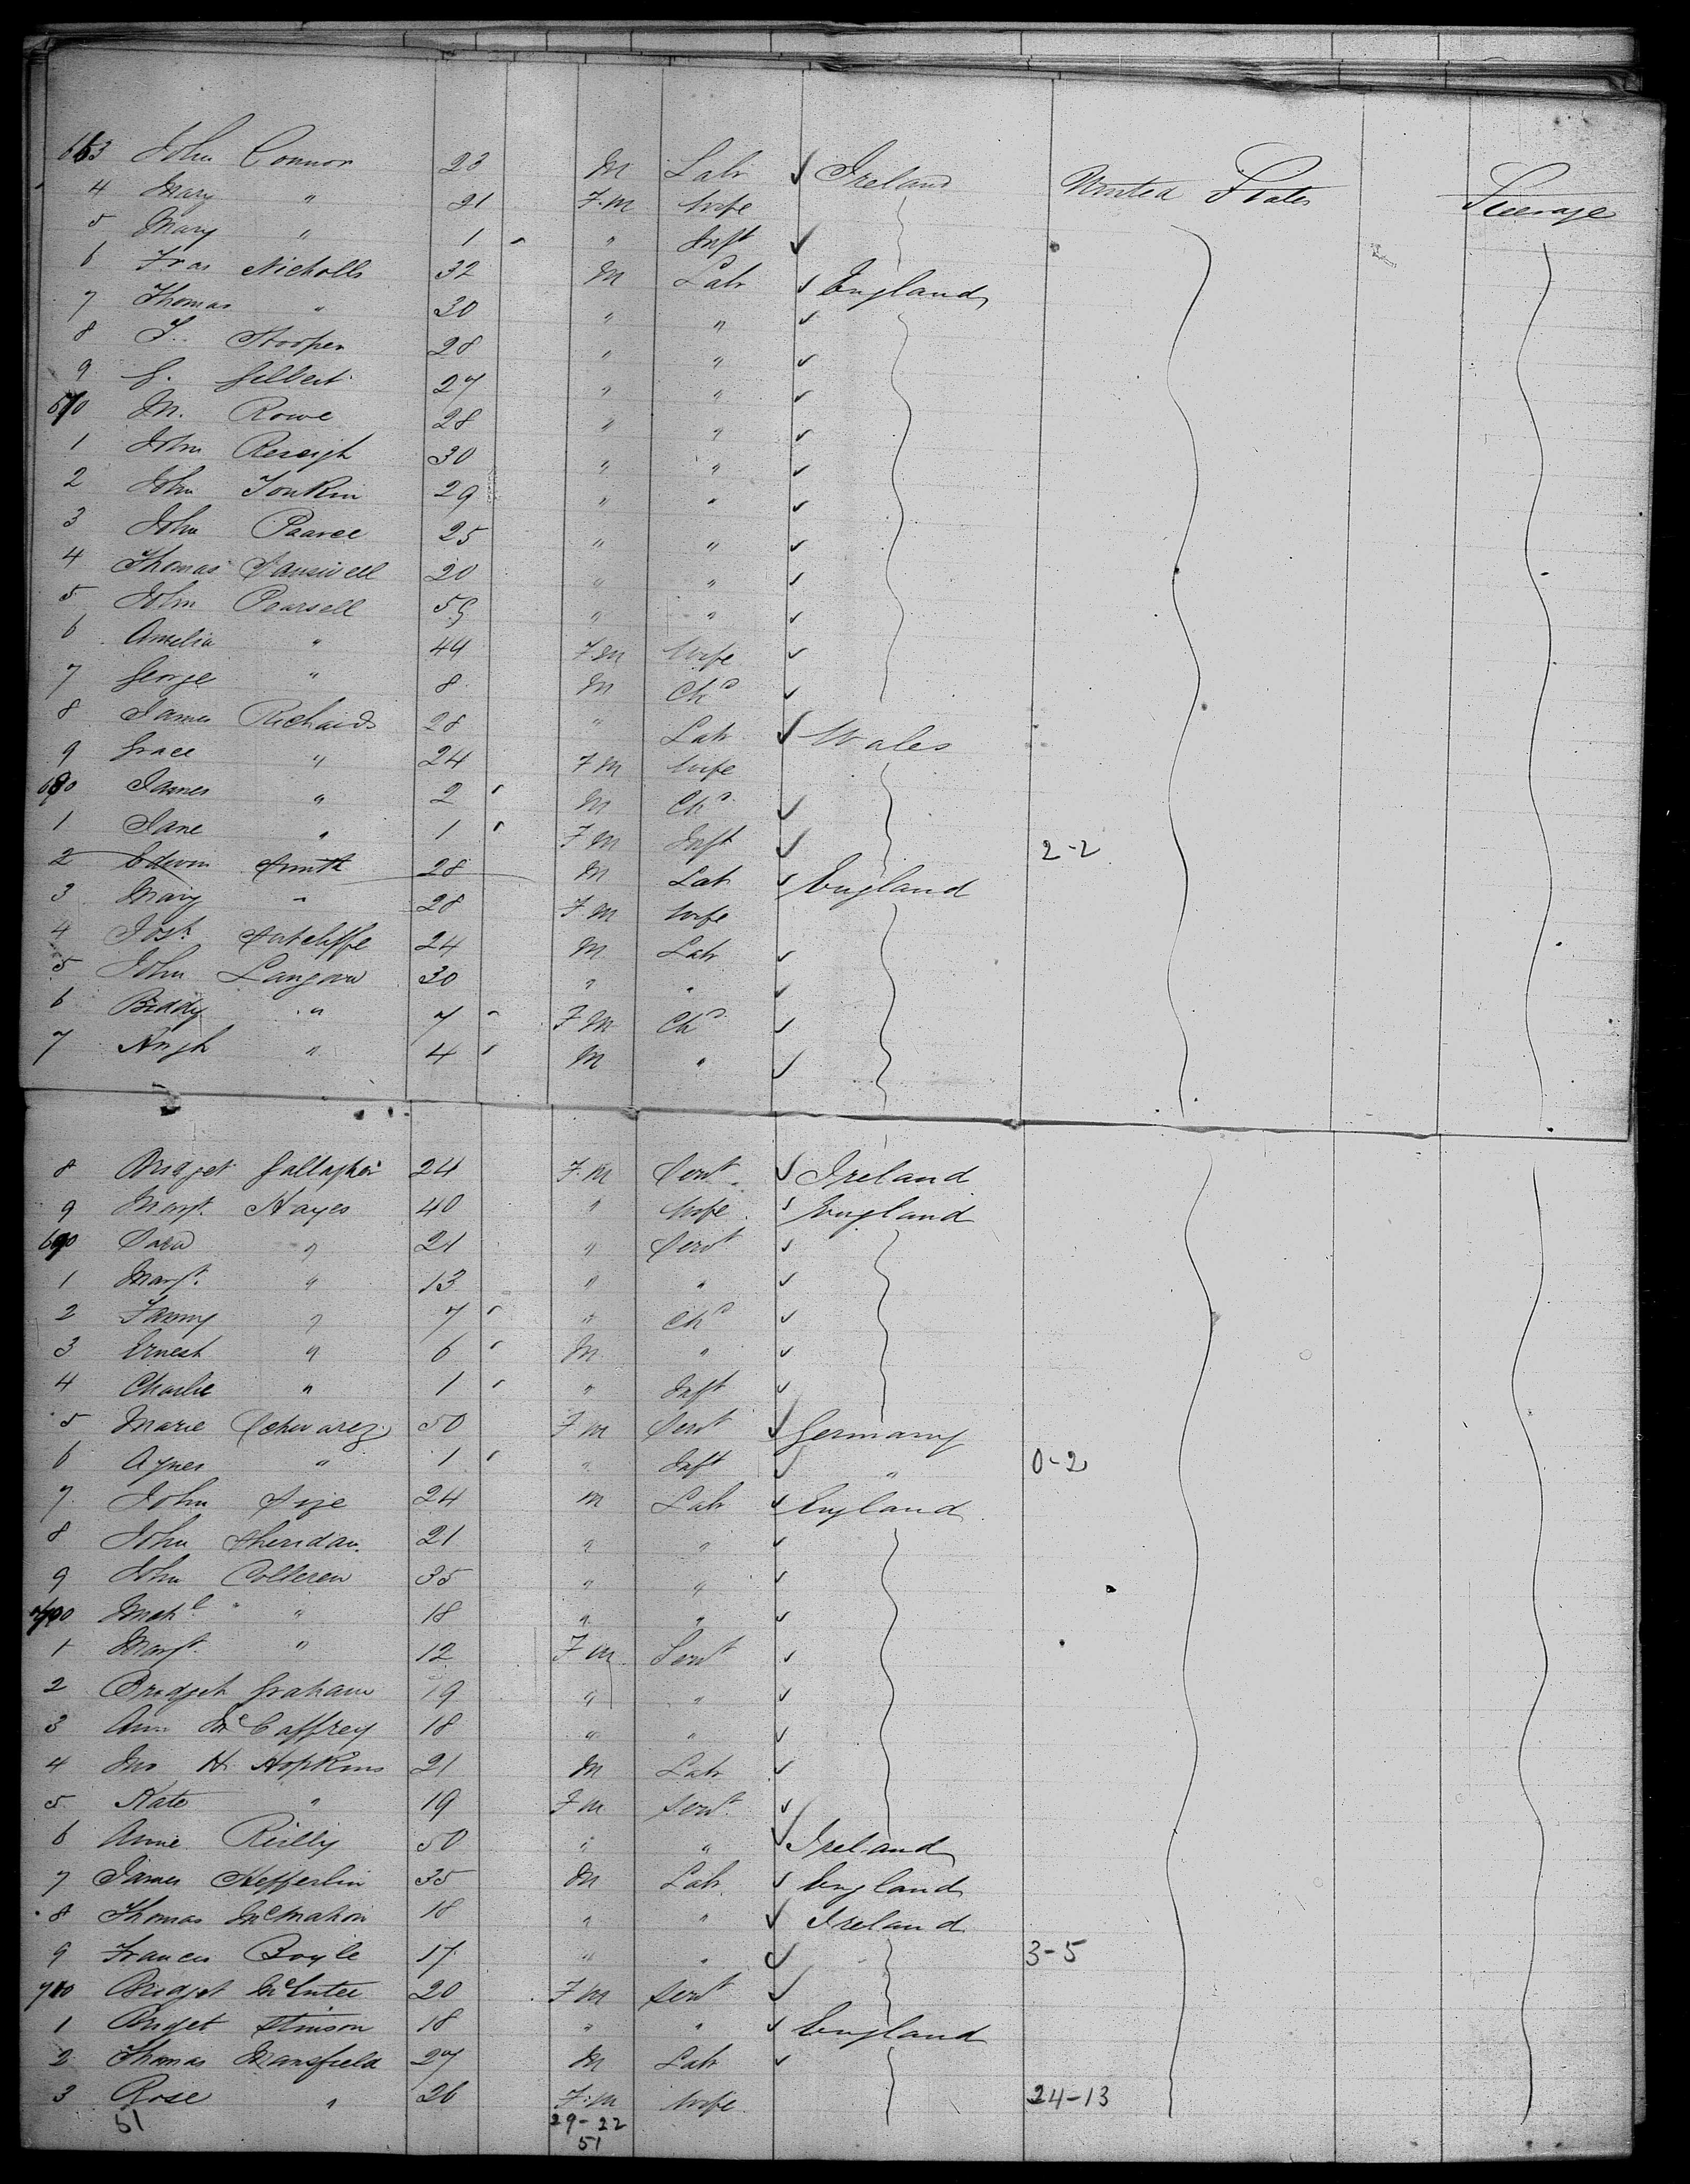 663 John Connor 23 M Labr ✓ Ireland United States Steerage
4 Mary " 21 F.M Wife
5 Mary " 1 " Inft ✓
6 Fras Nicholls 32 M Labr ✓ England
7 Thomas " 30 " " ✓
8 T. Hooper 28 " " ✓
9 G. Gilbert 27 " " ✓
670 M. Rowe 28 " " ✓
1 John Reseigh 30 " " ✓
2 John Tonkin 29 " " ✓
3 John Paarce 25 " " ✓
4 Thomas 20 " " ✓
5 John Pearsell 55 " " ✓
6 Amelia " 44 F.M Wife ✓
7 George " 8 M Chd ✓
8 James Richards 28 " Labr ✓ Wales
9 Grace " 24 F M Wife
680 James " 2 M Chd ✓
1 Jane " 1 F M Inft ✓ 2-2
2 Edwin Smith 28 M Labr ✓ England
3 Mary " 28 F M Wife
4 Josh Sutcliffe 24 M Labr ✓
5 John Langan 30 " " ✓
6 Biddy " 7 F M Chd ✓
7 Hugh " 4 M " ✓
8 Bridget Gallagher 24 F.M Servt ✓ Ireland
9 Margt Hayes 40 " Wife ✓ England
690 Sara " 21 " Servt ✓
1 Margt " 13 " " ✓
2 Fanny " 7 " Chd ✓
3 Ernest " 6 M " ✓
4 Charlie " 1 " Inft ✓
5 Marie Schwarez 50 F M Servt ✓ Germany
6 Agnes " 1 " Inft ✓ " 0-2
7 John Size 24 M Labr ✓ England
8 John Sheridan 21 " " ✓
9 John Colleren 35 " " ✓
700 Michl " 18 " " ✓
1 Margt " 12 F M Servt ✓
2 Bridget Graham 19 " " ✓
3 Ann McCaffrey 18 " " ✓
4 Jno H Hopkins 21 M Labr ✓
5 Kate " 19 F M Servt ✓
6 Annie Reilly 50 " " ✓ Ireland
7 James Hefferlin 35 M Labr ✓ England
8 Thomas McMahon 18 " " ✓ Ireland
9 Francis Boyle 17 " " ✓ 3-5
710 Bridget McEntee 20 F M Servt ✓
1 Bridget Stinson 18 " " ✓ England
2 Thomas Mansfield 27 M Labr ✓
3 Rose " 26 F.M Wife 24-13
51 29-22
51